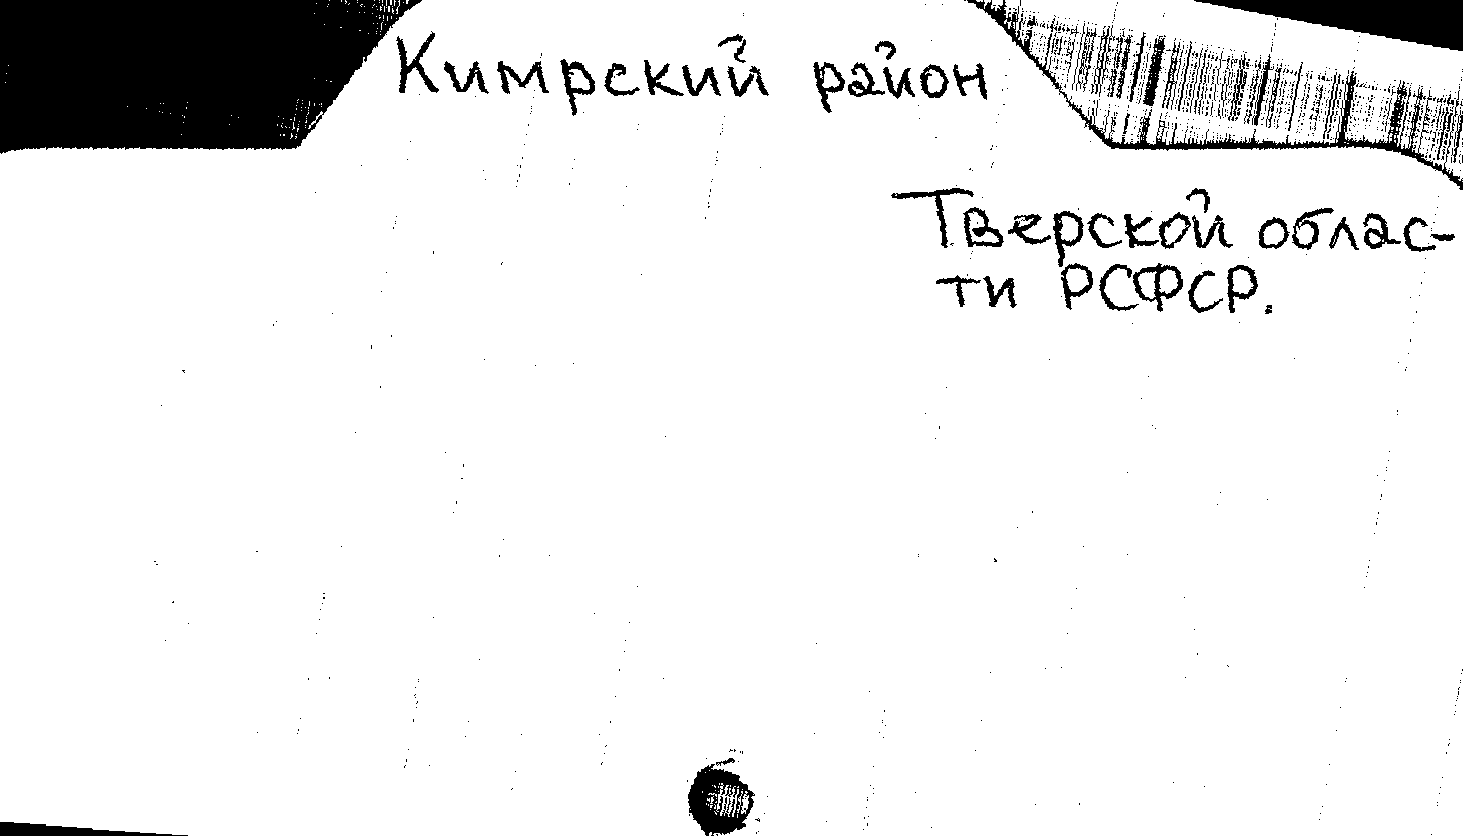 Кимрский район
Тверской облас-
ти РСФСР.